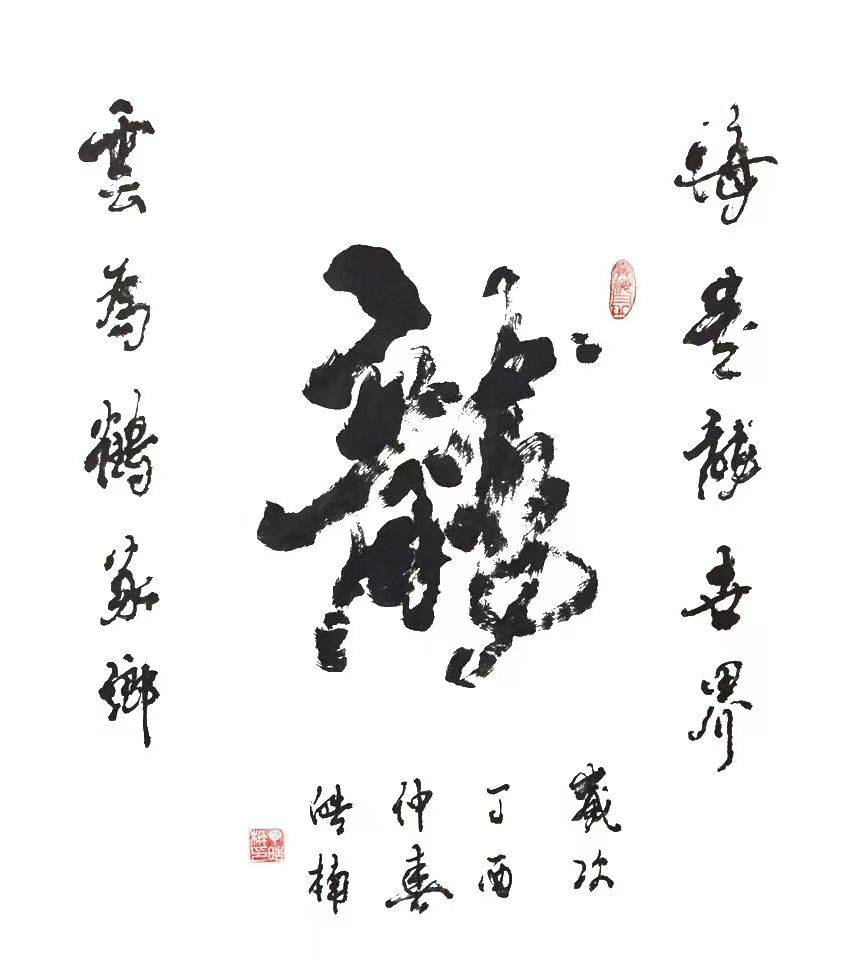 海是龍世界
龍
雲為鶴家鄉
歲次
丁酉
仲春
浩楠